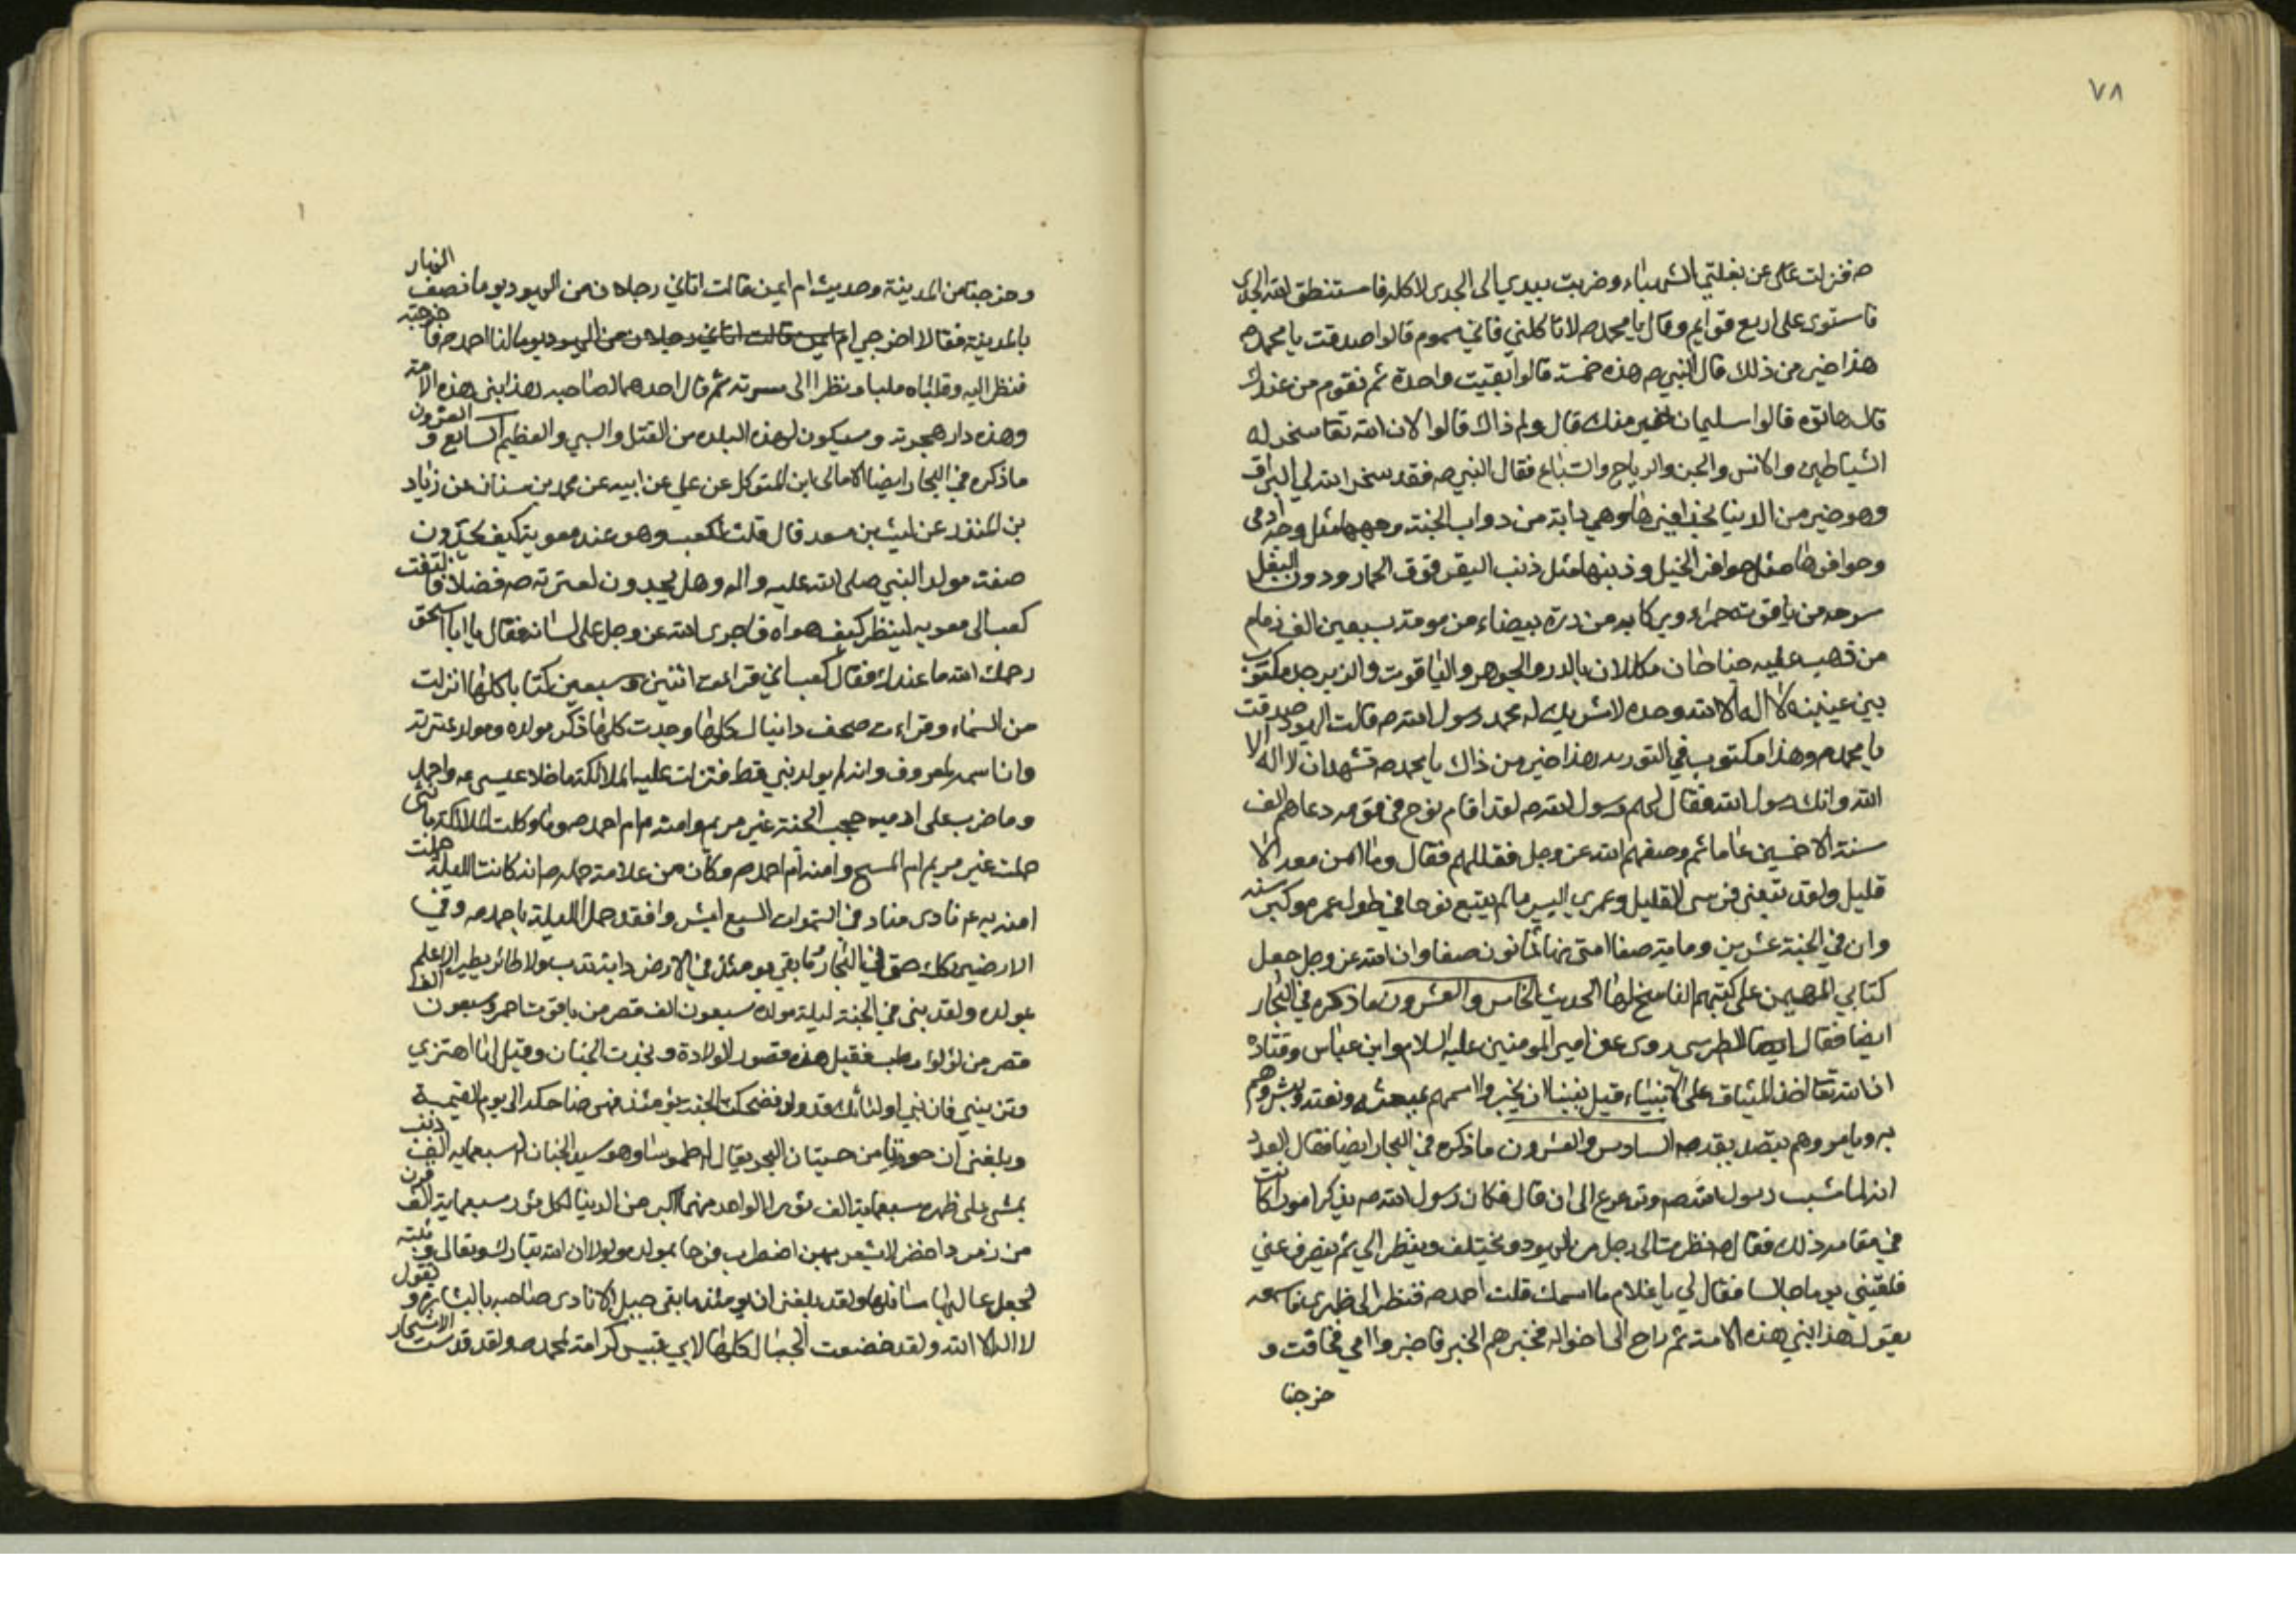 ٧٨
صه فنزلت عن بغلتي الشهباء وضربت بيدي الى الجدي لاكله فاستنطق الله الجدي
فاستوى على اربع قوايم وقال يا محمد صه لا تاكلني فاني مسموم قالوا صدقت يا محمد صه
هذا خير من ذلك قال النبي صه هذه خمسة قالوا بقيت واحدة ثم نقوم من عندك
قال هاتوه قالوا سليمان خير منك قال ولم ذاك قالوا لان الله تعا سخر له
الشياطين والانس والجن والرياح والسباع فقال النبي صه فقد سخر الله لي البراق
وهو خير من الدنيا بحذافيرها وهي دابة من دواب الجنة وجهها مثل وجه ادمي
وحوافرها مثل حوافر الخيل وذنبها مثل ذنب البقر فوق الحمار ودون البغل
سرجه من ياقوته حمراء وركابه من درة بيضاء مزمومة بسبعين الف زمام
من ذهب عليه جناحان مكللان بالدر والجوهر والياقوت والزبرجد مكتوب
بين عينيه لا اله الا الله وحده لا شريك له محمد رسول الله صه قالت اليهود صدقت
يا محمد صه وهذا مكتوب في التورية هذا خير من ذاك يا محمد صه نشهد ان لا اله الا
الله وانك رسول الله فقال لهم رسول الله صه لقد اقام نوح في قومه ودعاهم الف
سنة الا خمسين عاما ثم وصفهم الله عز وجل فقللهم فقال وما امن معه الا
قليل ولقد تبعني في سني القليل وعمري اليسير ما لم يتبع نوحا في طول عمره وكبر سنه
وان في الجنة عشرين وماية صفا امتي منها ثمانون صفا وان الله عز وجل جعل
كتابي المهيمن على كتبهم الناسخ لها الحديث الخامس والعشرون ما ذكره في البحار
ايضا فقال الطبرسي روى عن امير المومنين عليه السلام وابن عباس وقتاده
ان الله تعا اخذ الميثاق على الانبياء قبل نبينا ان يخبروا اممهم بمبعثه ونعته ويبشروهم
به ويامروهم بتصديقه صه السادس والعشرون ما ذكره في البحار ايضا فقال العدد
انه لما شب رسول الله صه وترعرع الى ان قال فكان رسول الله صه يذكر امورا كانت
في مقامه ذلك فقال صه نظرت الى رجل من اليهود يختلف وينظر الي ثم ينصرف عني
فلقيني يوما جالسا فقال لي يا غلام ما اسمك قلت احمد صه فنظر الى ظهري فاسمعه
يقول هذا نبي هذه الامة ثم راح الى اخواله فخبرهم الخبر فاخبروا امي فخافت و
خرجنا
وخرجنا من المدينة وحديث ام ايمن قالت اتاني رجلان من اليهود يوما نصف النهار
بالمدينة فقالا اخرجي ام ايمن قالت اتاني رجلان من اليهود يوما لنا احمد صه فاخرجته
فنظرا اليه وقلباه مليا ونظرا الى سرته ثم قال احدهما لصاحبه هذا نبي هذه الامة
وهذه دار هجرته وسيكون لهذه البلده من القتل والسبي والعظيم السابع والعشرون
ما ذكره في البحار ايضا الامالي ابن المتوكل عن علي عن ابيه عن محمد بن سنان عن زياد
بن المنذر عن ليث بن سعد قال قلت لكعب وهو عند معوية كيف تجدون
صفت مولد النبي صلى الله عليه واله وهل تجدون لعترته صه فضلا فالتفت
كعب الى معويه لينظر كيف هواه فاجرى الله عز وجل على لسانه فقال يا ابا اسحق
رحمك الله ما عندك فقال كعب اني قرات اثنين وسبعين كتابا كلها انزلت
من السماء وقراءت صحف دانيال كلها وجدت كلها ذكر مولده ومولد عترته
وان اسمه لمعروف وانه لم يولد نبي قط فنزلت عليه الملائكة ما خلا عيسى عه واحمد
وما ضرب على ادميه حجب الجنة غير مريم وامنه ام احمد صه وما وكلت الملائكة بانثى
حملت غير مريم ام المسيح وامنه ام احمد صه وكان من علامة حمله صه انه كانت الليلة حملت
امنه به عم نادى مناد في السموات السبع ابشروا فقد حمل الليلة باحمد صه وفي
الارضين كذلك حتى في البحار وما بقي يومئذ في الارض دابة تدب ولا طائر يطير الا علم
بمولده ولقد بنى في الجنة ليلة مولده سبعون الف قصر من ياقوت احمر وسبعون الف
قصر من لؤلؤ رطب فقيل هذه قصور الولادة ونجدت الجنان وقيل لها اهتزي
وتزيني فان نبي اوليائك قد ولد فضحكت الجنة يومئذ فهي ضاحكه الى يوم القيمة
وبلغني ان حوتا من حيتان البحر يقال له طموسا وهو سيد الحيتان له سبعمايه الف ذنب
يمشي على ظهره سبعماية الف ثور الواحد منهما اكبر من الدنيا لكل ثور سبعماية الف قرن
من زمرد اخضر لا يشعر بهن اضطرب فرحا بمولده ولولا ان الله تبارك وتعالى ثبته
لجعل عاليها سافلها ولقد بلغني ان يومئذ ما بقي جبل الا نادى صاحبه بالبشارة ويقول
لا اله الا الله ولقد خضعت الجبال كلها لابي قبيس كرامة لمحمد صه ولقد قدست الاشجار